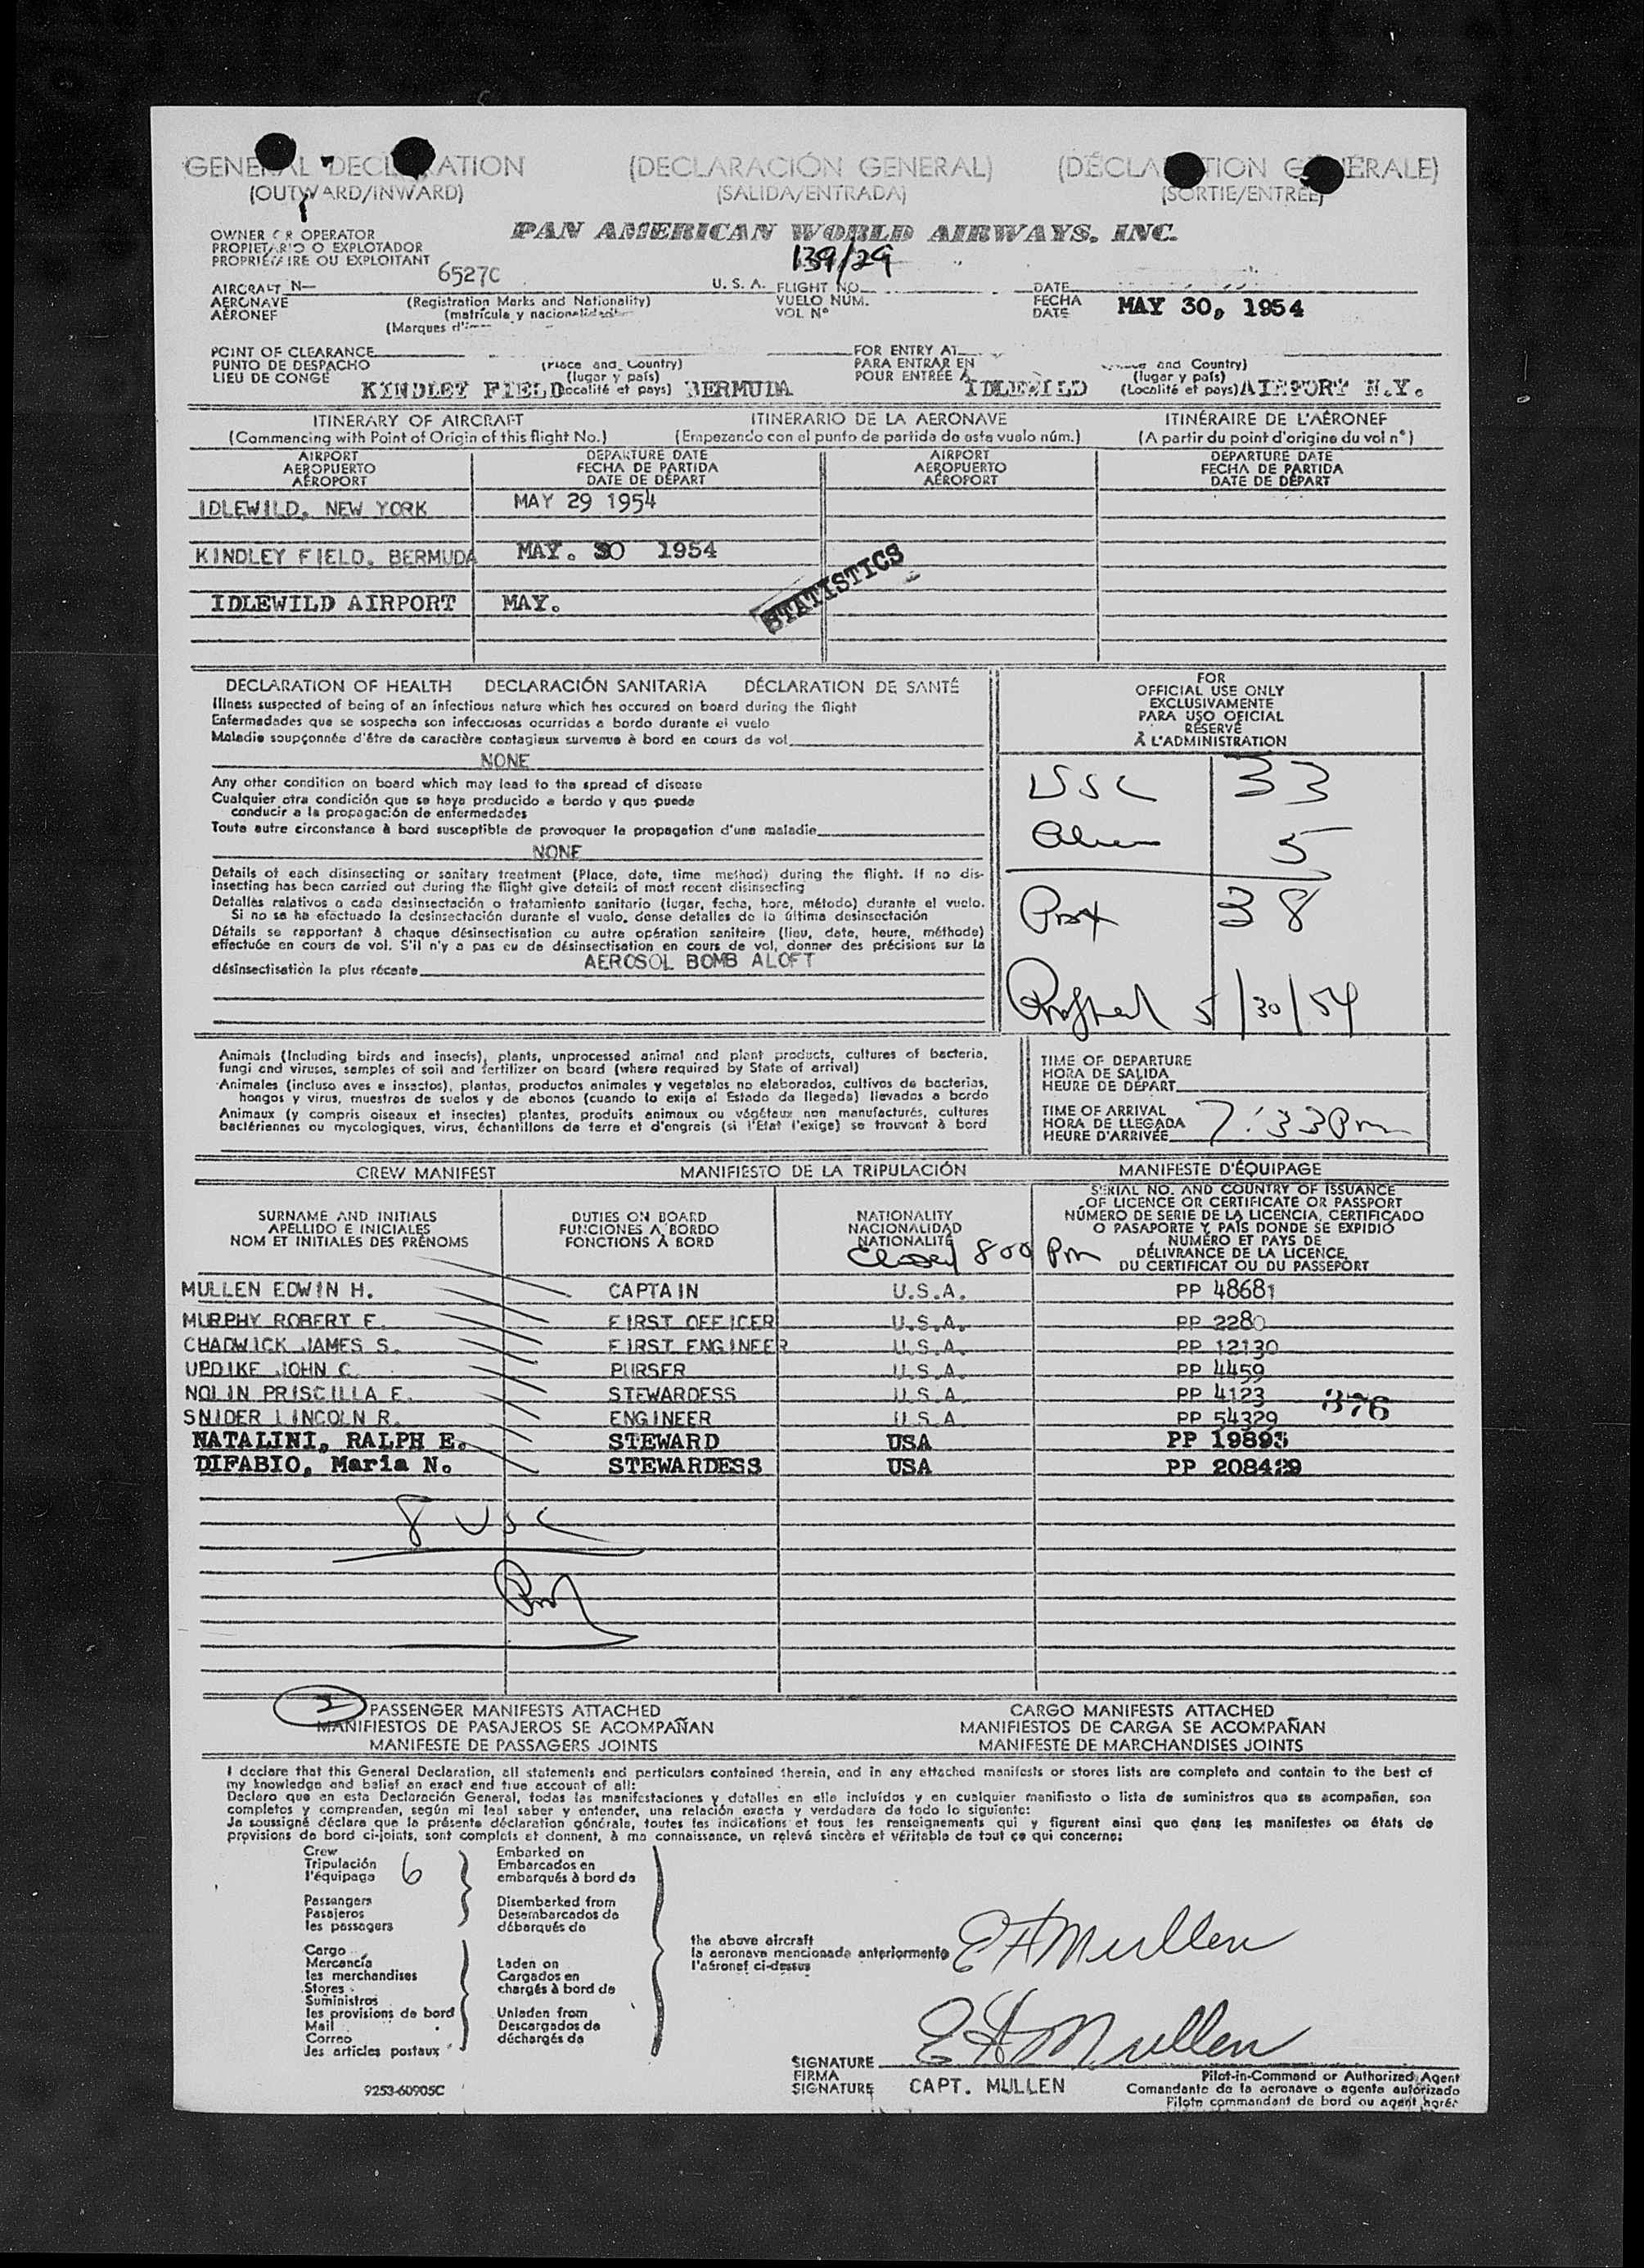 GENERAL DECLARATION (DECLARACIÓN GENERAL) (DÉCLARATION GÉNÉRALE)
(OUTWARD/INWARD) (SALIDA/ENTRADA) (SORTIE/ENTRÉE)
PAN AMERICAN WORLD AIRWAYS, INC.
OWNER OR OPERATOR
PROPIETARIO O EXPLOTADOR
PROPRIÉTAIRE OU EXPLOITANT
139/29
6527C
AIRCRAFT N— U. S. A. FLIGHT NO. DATE
AERONAVE (Registration Marks and Nationality) VUELO NÚM. FECHA MAY 30, 1954
AÉRONEF (matrícula y nacionalidad) VOL N° DATE
(Marques d'
POINT OF CLEARANCE FOR ENTRY AT
PUNTO DE DESPACHO (Place and Country) PARA ENTRAR EN and Country)
LIEU DE CONGÉ (lugar y país) POUR ENTRÉE À (lugar y país)
KINDLEY FIELD (Localité et pays) BERMUDA IDLEWILD (Localité et pays) AIRPORT N.Y.
ITINERARY OF AIRCRAFT ITINERARIO DE LA AERONAVE ITINÉRAIRE DE L'AÉRONEF
(Commencing with Point of Origin of this flight No.) (Empezando con el punto de partida de este vuelo núm.) (A partir du point d'origine du vol n°)
AIRPORT DEPARTURE DATE AIRPORT DEPARTURE DATE
AEROPUERTO FECHA DE PARTIDA AEROPUERTO FECHA DE PARTIDA
AÉROPORT DATE DE DÉPART AÉROPORT DATE DE DÉPART
IDLEWILD, NEW YORK MAY 29 1954
KINDLEY FIELD, BERMUDA MAY. 30 1954
STATISTICS
IDLEWILD AIRPORT MAY.
DECLARATION OF HEALTH DECLARACIÓN SANITARIA DÉCLARATION DE SANTÉ
Illness suspected of being of an infectious nature which has occured on board during the flight
Enfermedades que se sospecha son infecciosas ocurridas a bordo durante el vuelo
Maladie soupçonnée d'être de caractère contagieux survenue à bord en cours de vol
NONE
Any other condition on board which may lead to the spread of disease
Cualquier otra condición que se haya producido a bordo y que pueda
conducir a la propagación de enfermedades
Toute autre circonstance à bord susceptible de provoquer la propagation d'une maladie
NONE
Details of each disinsecting or sanitary treatment (Place, date, time method) during the flight. If no dis-
insecting has been carried out during the flight give details of most recent disinsecting
Detalles relativos a cada desinsectación o tratamiento sanitario (lugar, fecha, hora, método) durante el vuelo.
Si no se ha efectuado la desinsectación durante el vuelo, dense detalles de la última desinsectación
Détails se rapportant à chaque désinsectisation ou autre opération sanitaire (lieu, date, heure, méthode)
effectuée en cours de vol. S'il n'y a pas eu de désinsectisation en cours de vol, donner des précisions sur la
désinsectisation la plus récente AEROSOL BOMB ALOFT
FOR
OFFICIAL USE ONLY
EXCLUSIVAMENTE
PARA USO OFICIAL
RÉSERVÉ
À L'ADMINISTRATION
USC 33
Alien 5
38
5/30/54
Animals (Including birds and insects), plants, unprocessed animal and plant products, cultures of bacteria,
fungi and viruses, samples of soil and fertilizer on board (where required by State of arrival)
Animales (incluso aves e insectos), plantas, productos animales y vegetales no elaborados, cultivos de bacterias,
hongos y virus, muestras de suelos y de abonos (cuando lo exija el Estado de llegada) llevados a bordo
Animaux (y compris oiseaux et insectes) plantes, produits animaux ou végétaux non manufacturés, cultures
bactériennes ou mycologiques, virus, échantillons de terre et d'engrais (si l'État l'exige) se trouvant à bord
TIME OF DEPARTURE
HORA DE SALIDA
HEURE DE DÉPART
TIME OF ARRIVAL
HORA DE LLEGADA 7:33 Pm
HEURE D'ARRIVÉE
CREW MANIFEST MANIFIESTO DE LA TRIPULACIÓN MANIFESTE D'ÉQUIPAGE
SURNAME AND INITIALS
APELLIDO E INICIALES
NOM ET INITIALES DES PRÉNOMS
DUTIES ON BOARD
FUNCIONES A BORDO
FONCTIONS À BORD
NATIONALITY
NACIONALIDAD
NATIONALITÉ
SERIAL NO. AND COUNTRY OF ISSUANCE
OF LICENCE OR CERTIFICATE OR PASSPORT
NÚMERO DE SERIE DE LA LICENCIA, CERTIFICADO
O PASAPORTE Y PAÍS DONDE SE EXPIDIÓ
NUMÉRO ET PAYS DE
DÉLIVRANCE DE LA LICENCE,
DU CERTIFICAT OU DU PASSEPORT
Closed 800 Pm
MULLEN EDWIN H. CAPTAIN U.S.A. PP 48681
MURPHY ROBERT E. FIRST OFFICER U.S.A. PP 2280
CHADWICK JAMES S. FIRST ENGINEER U.S.A. PP 12130
UPDIKE JOHN C. PURSER U.S.A. PP 4459
NOLIN PRISCILLA E. STEWARDESS U.S.A. PP 4123
376
SNIDER LINCOLN R. ENGINEER U.S.A. PP 54329
NATALINI, RALPH E. STEWARD USA PP 19893
DIFABIO, Maria N. STEWARDESS USA PP 208429
8 USC
2 PASSENGER MANIFESTS ATTACHED CARGO MANIFESTS ATTACHED
MANIFIESTOS DE PASAJEROS SE ACOMPAÑAN MANIFIESTOS DE CARGA SE ACOMPAÑAN
MANIFESTE DE PASSAGERS JOINTS MANIFESTE DE MARCHANDISES JOINTS
I declare that this General Declaration, all statements and particulars contained therein, and in any attached manifests or stores lists are complete and contain to the best of
my knowledge and belief an exact and true account of all:
Declaro que en esta Declaración General, todas las manifestaciones y detalles en ella incluídos y en cualquier manifiesto o lista de suministros que se acompañen, son
completos y comprenden, según mi leal saber y entender, una relación exacta y verdadera de todo lo siguiente:
Je soussigné déclare que la présente déclaration générale, toutes les indications et tous les renseignements qui y figurent ainsi que dans les manifestes on états de
provisions de bord ci-joints, sont complets et donnent, à ma connaissance, un relevé sincère et véritable de tout ce qui concerne:
Crew
Tripulación 6
l'équipage
Passengers
Pasajeros
les passagers
Cargo
Mercancía
les merchandises
Stores
Suministros
les provisions de bord
Mail
Correo
les articles postaux
Embarked on
Embarcados en
embarqués à bord de
Disembarked from
Desembarcados de
débarqués de
Laden on
Cargados en
chargés à bord de
Unladen from
Descargados de
déchargés de
the above aircraft
la aeronave mencionada anteriormente
l'aéronef ci-dessus
E H Mullen
E H Mullen
SIGNATURE
FIRMA
SIGNATURE CAPT. MULLEN
Pilot-in-Command or Authorized Agent
Comandante de la aeronave o agente autorizado
Pilote commandant de bord ou agent agréé
9253-60905C